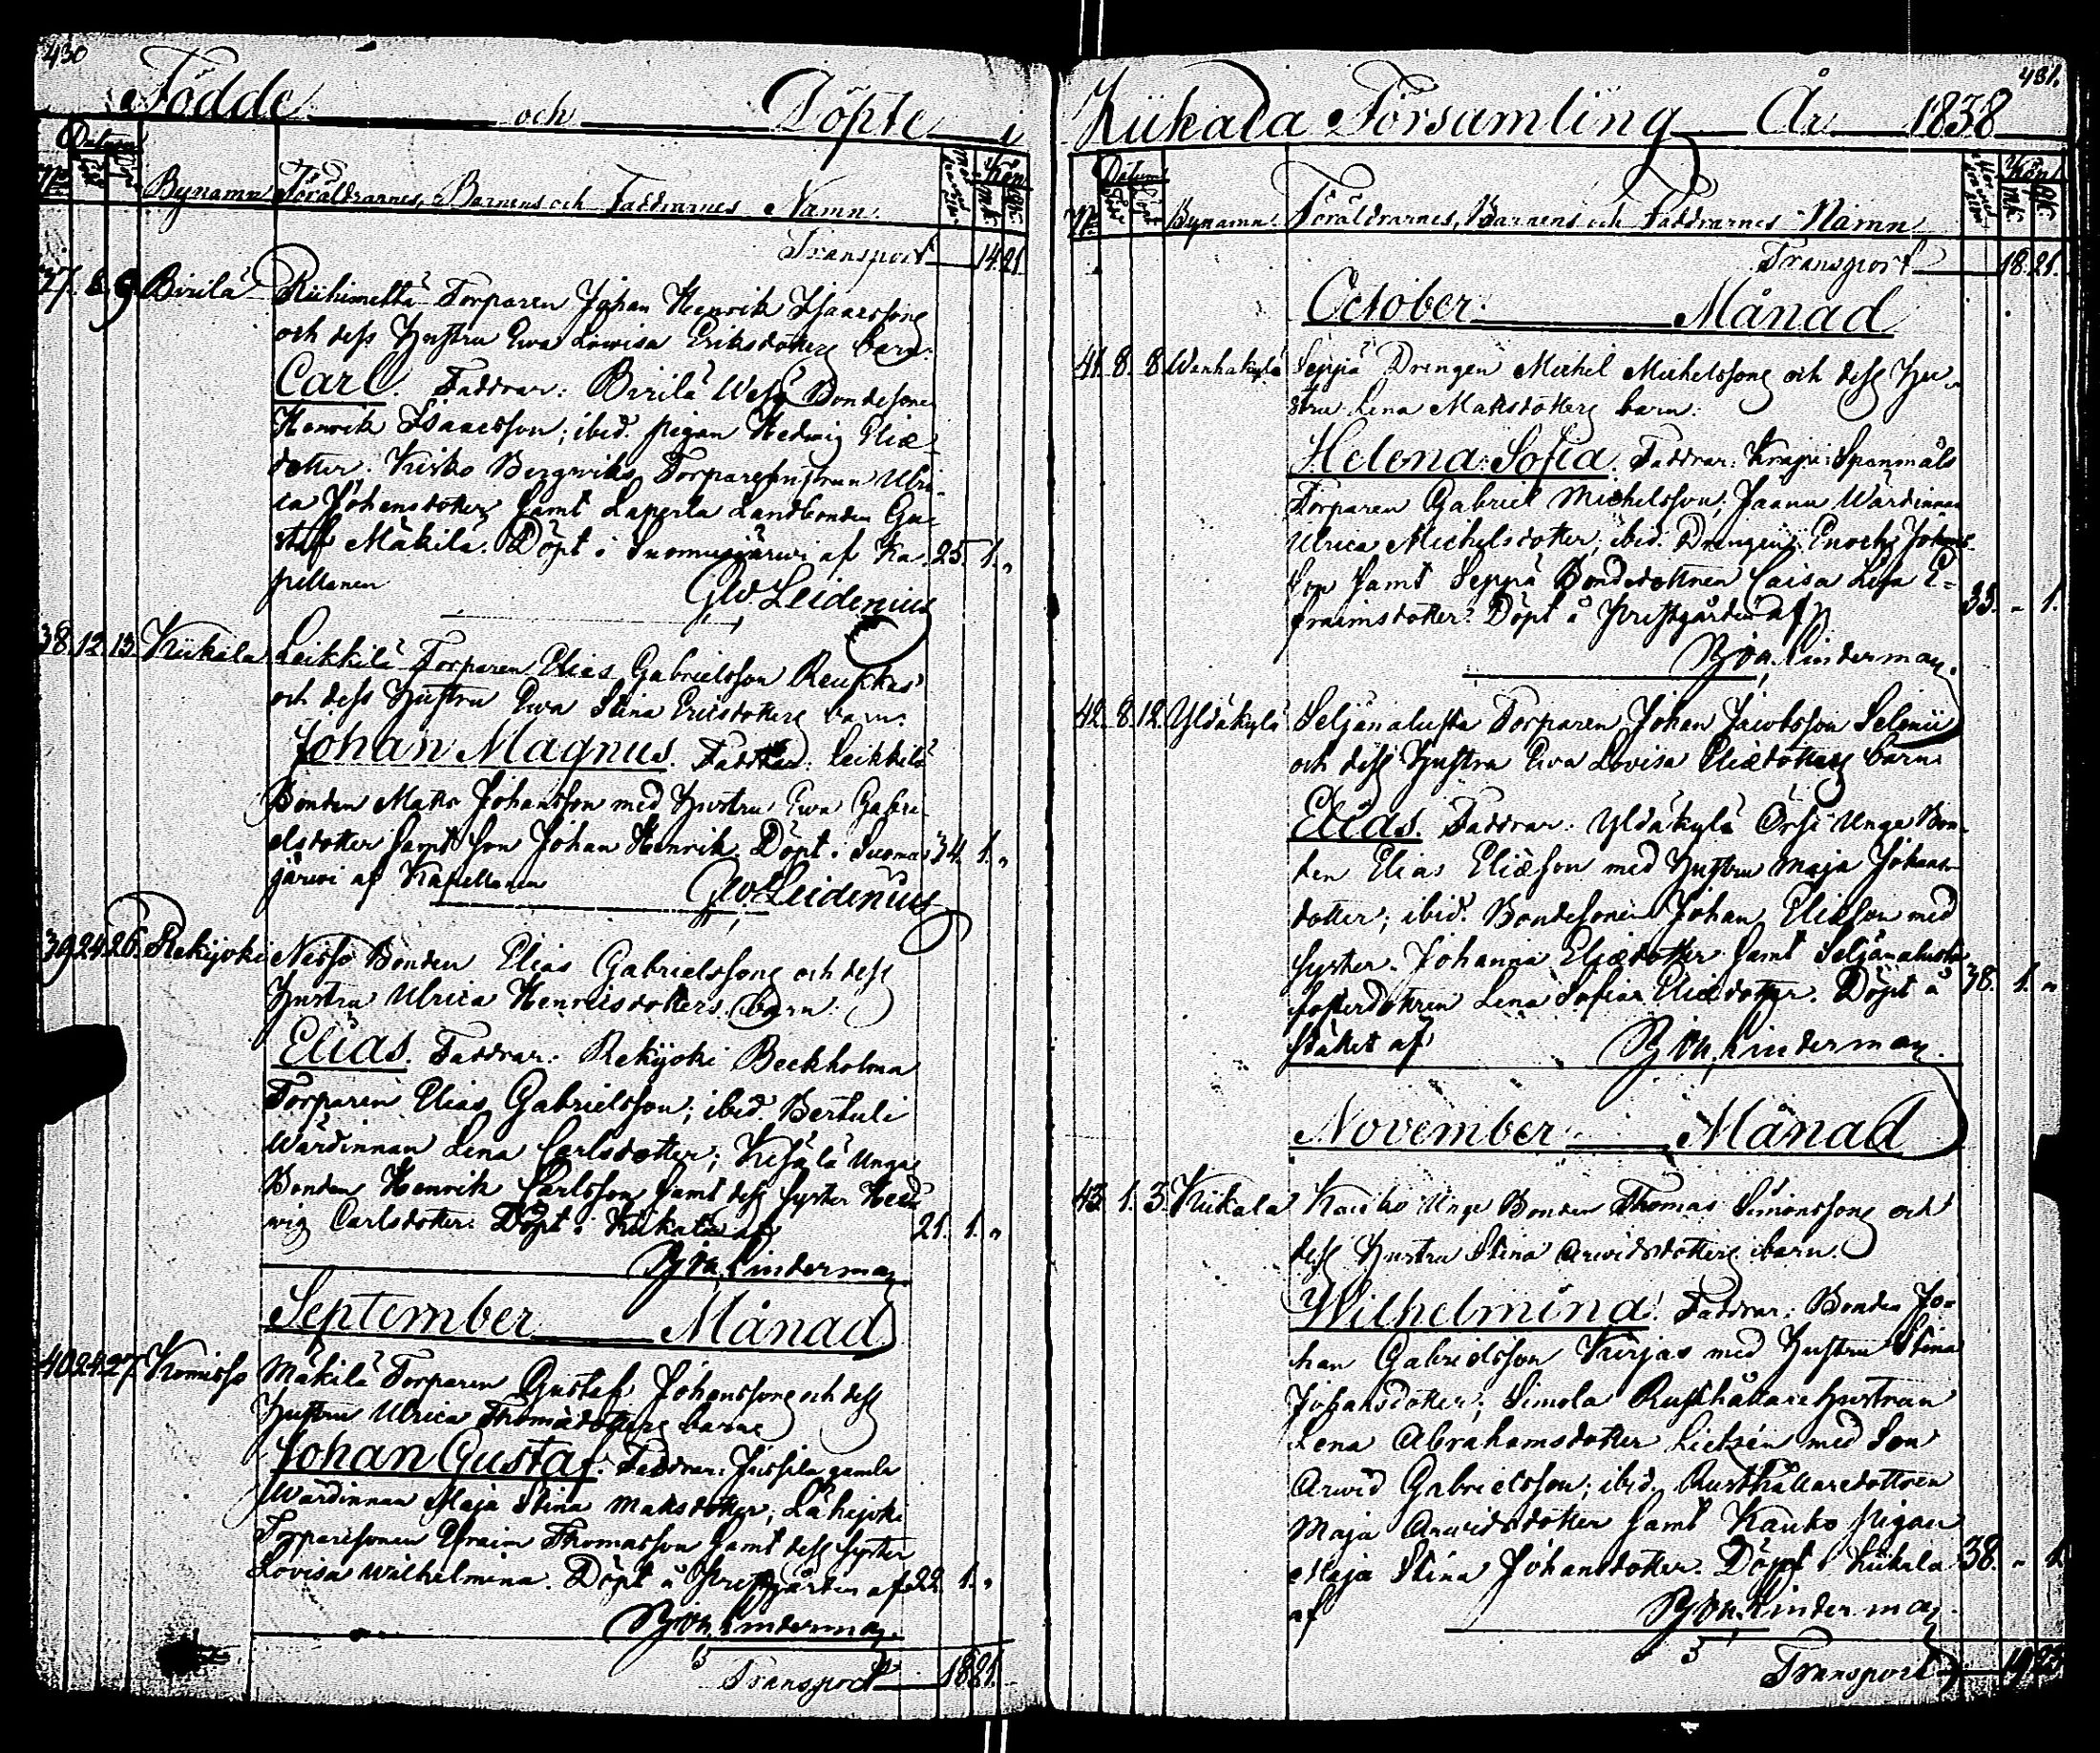 430
Födde och Döpte i
Datum
No Bynamn Föräldrarnes, Barnens och Faddrarnes Namn. Kön
Mk. Qk.
Transport 14. 21.
37. 8. 9. Birilä Riihimettä Torparen Johan Henrik Isaacssons
och dess Hustru Ewa Lowisa Eriksdotters barn:
Carl. Faddrar: Birilä Wesa Bondesonen
Henrik Isaacsson; ibid. pigan Hedwig Eliæ
dotter. Kisko Bergwiks Torparehustrun Ulri-
ca Johansdotter Samt Laperla Landbonden Gu-
staf Mäkilä. Döpt i Suomusjärwi af Ka- 25. 1. "
pellanen
Leidenius
38. 12. 13. Kiikala Leikkilä Torparen Elias Gabrielsson
och dess Hustru Ewa Stina Ericsdotters barn:
Johan Magnus. Faddrar: Leikkilä
Bonden Matts Johansson med Hustru Ewa Gabri-
elsdotter Samt Son Johan Henrik. Döpt i Suomus 34. 1. "
järwi af Kapellanen
Leidenius
39. 24. 26. Rekijoki Bonden Elias Gabrielssons och dess
Hustru Ulrica Henricsdotters barn:
Elias. Faddrar: Rekijoki Beckholma
Torparen Elias Gabrielsson; ibid. Bertuli
Wärdinnan Lena Carlsdotter; Unga
Bonden Henrik Carlsson Samt dess Syster Hed
wig Carlsdotter. Döpt i Kiikala af 21. 1. "
Linderman.
September Månad
40. 24. 27. Komisso Mäkilä Torparen Gustaf Johanssons och dess
Hustru Ulrica Thomædotters barn
Johan Gustaf. Faddrar: Jussila gamla
Wärdinnan Maja Stina Matsdotter; Lahijoki
Torparesonen Efraim Thomasson Samt dess Syster
Lovisa Wilhelmina. Döpt å Prestgården af 22. 1. "
Linderman.
Transport 18 21.
431.
Kiikala Församling År 1838
Datum Kön
No Bynamn. Föräldrarnes, Barnens och Faddrarnes Namn Mk. Qk.
Transport 18. 21.
October Månad
41. 8. 8. Wanhakylä Seppä Drengen Michel Michelssons och dess Hu-
stru Lena Matsdotters barn:
Helena Sofia. Faddrar: Spanmåls
Torparen Gabriel Michelsson; Jaanu Wärdinnan
Ulrica Michelsdotter; ibid. Drengen Enoch Johans-
son Samt Seppä Bondedottren Caisa Lisa E-
fraimsdotter. Döpt å Prestgården af 33. " 1.
Linderman.
42. 8. 12. Yldäkylä Seljänalusta Torparen Johan Jacobsson
och dess Hustru Ewa Lovisa Eliædotters barn:
Elias. Faddrar: Yldäkylä Unga Bon-
den Elias Eliæson med Hustru Maja Johans-
dotter; ibid. Bondesonen Johan Eliæson med
Syster Johanna Eliædotter Samt Seljänalusta
fosterdottren Lena Sofia Eliædotter. Döpt å 38. 1. "
stället af Linderman.
November Månad
43. 1. 3. Kiikala Kauko Unge Bonden Thomas Simonssons och
dess Hustru Stina Arwidsdotters barn.
Wilhelmina. Faddrar: Bonden Jo-
han Gabrielsson Kirjas med Hustru Stina
Johansdotter; Simola Rusthållarehustrun
Lena Abrahamsdotter Lietzén med Son
Arwid Gabrielsson; ibid. Rusthållaredottren
Maja Arwidsdotter Samt Kauko pigan
Maja Stina Johansdotter. Döpt i Kiikala 38. " 1.
af Linderman.
Transport 19 23